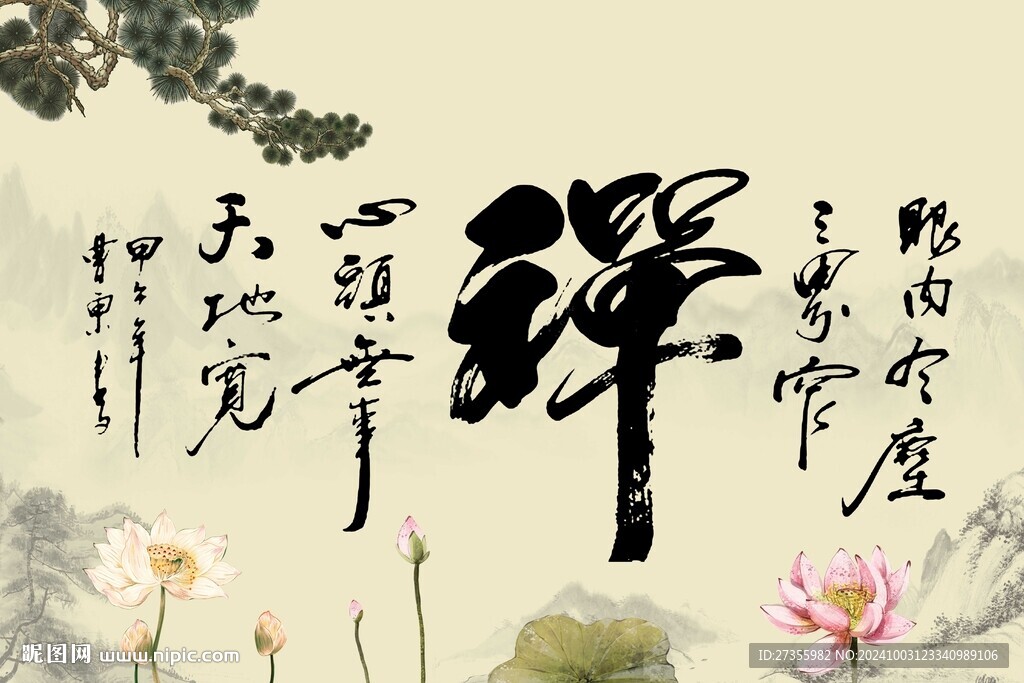 眼内有塵
三界窄
禪
心頭無事
天地寬
甲午年
昵图网 www.nipic.com
ID:27355982 NO:20241003123340989106